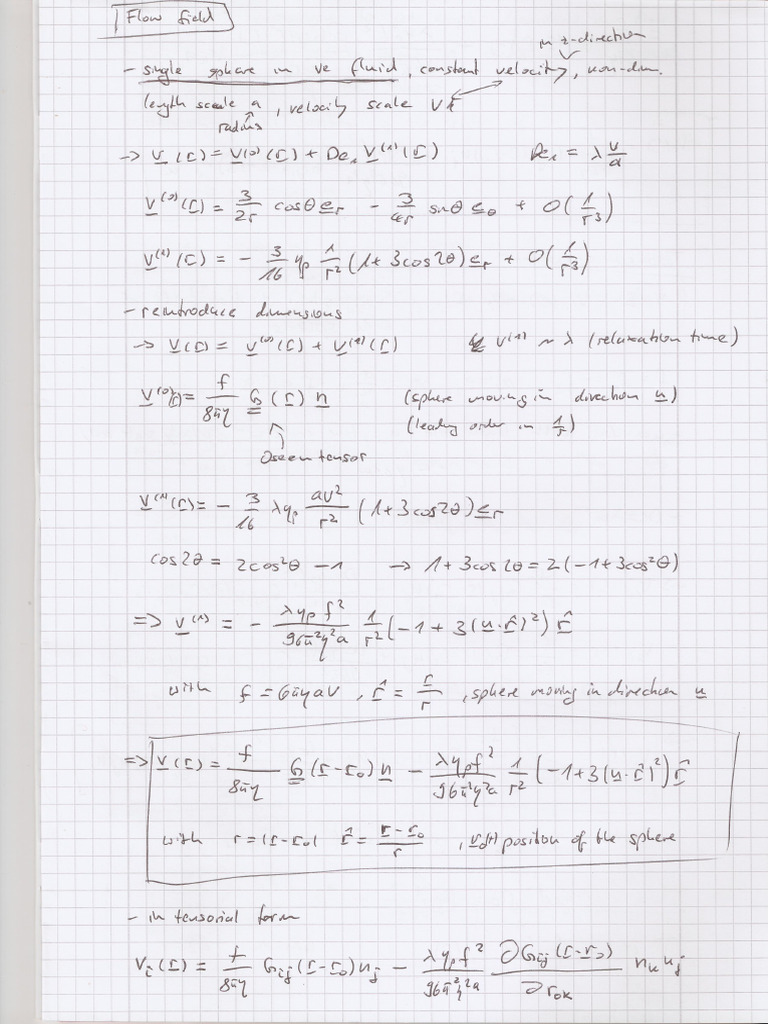 Flow field
in z-direction
- single sphere in ve fluid, constant velocity, non-dim.
length scale a, velocity scale V
radius
→ v(r) = v⁽⁰⁾(r) + De₁ v⁽¹⁾(r)    De₁ = λ v/a
v⁽⁰⁾(r) = 3/2r cosθ e_r - 3/4r sinθ e_θ + O(1/r³)
v⁽¹⁾(r) = - 3/16 η_p 1/r² (1+3cos2θ) e_r + O(1/r³)
- reintroduce dimensions
→ v(r) = v⁽⁰⁾(r) + v⁽¹⁾(r)    v⁽¹⁾ ~ λ (relaxation time)
v⁽⁰⁾(r) = f/8πη G(r) n    (sphere moving in direction n)
(leading order in 1/r)
Oseen tensor
v⁽¹⁾(r) = - 3/16 λη_p av²/r² (1+3cos2θ) e_r
cos2θ = 2cos²θ - 1 → 1+3cos2θ = 2(-1+3cos²θ)
=> v⁽¹⁾ = - λη_p f²/96π²η²a 1/r² (-1+3(n·r̂)²) r̂
with f = 6πηaV, r̂ = r/r, sphere moving in direction n
=> v(r) = f/8πη G(r-r₀) n - λη_p f²/96π²η²a 1/r² (-1+3(n·r̂)²) r̂
with r = |r-r₀| r̂ = r-r₀/r, r₀(t) position of the sphere
- in tensorial form
v_i(r) = f/8πη G_ij(r-r₀) n_j - λη_p f²/96π²η²a ∂G_ij(r-r₀)/∂r_0k n_k n_j